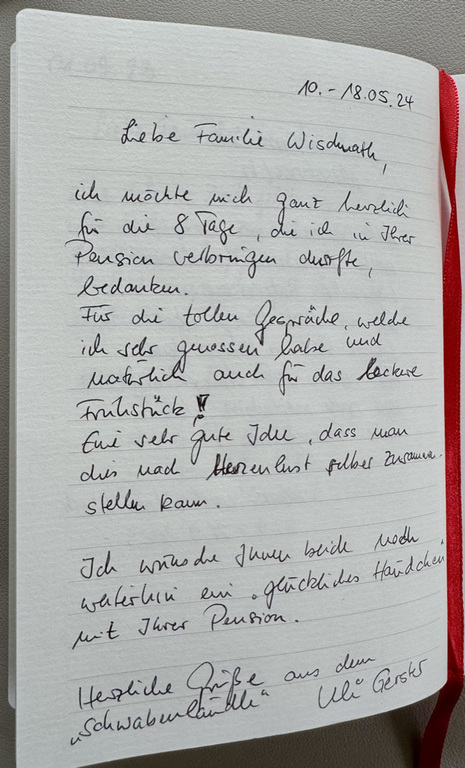 10. - 18.05.24
Liebe Familie Wisdmath,
ich möchte mich ganz herzlich
für die 8 Tage, die ich in Ihrer
Pension verbringen durfte,
bedanken.
Für die tollen Gespräche, welche
ich sehr genossen habe und
natürlich auch für das leckere
Frühstück!
Eine sehr gute Idee, dass man
dies nach Herzenlust selber zusammen-
stellen kann.
Ich wünsche Ihnen beide noch
weiterhin ein „glückliches Händchen“
mit Ihrer Pension.
Herzliche Grüße aus dem
„Schwabenländle“ Uli Gerster